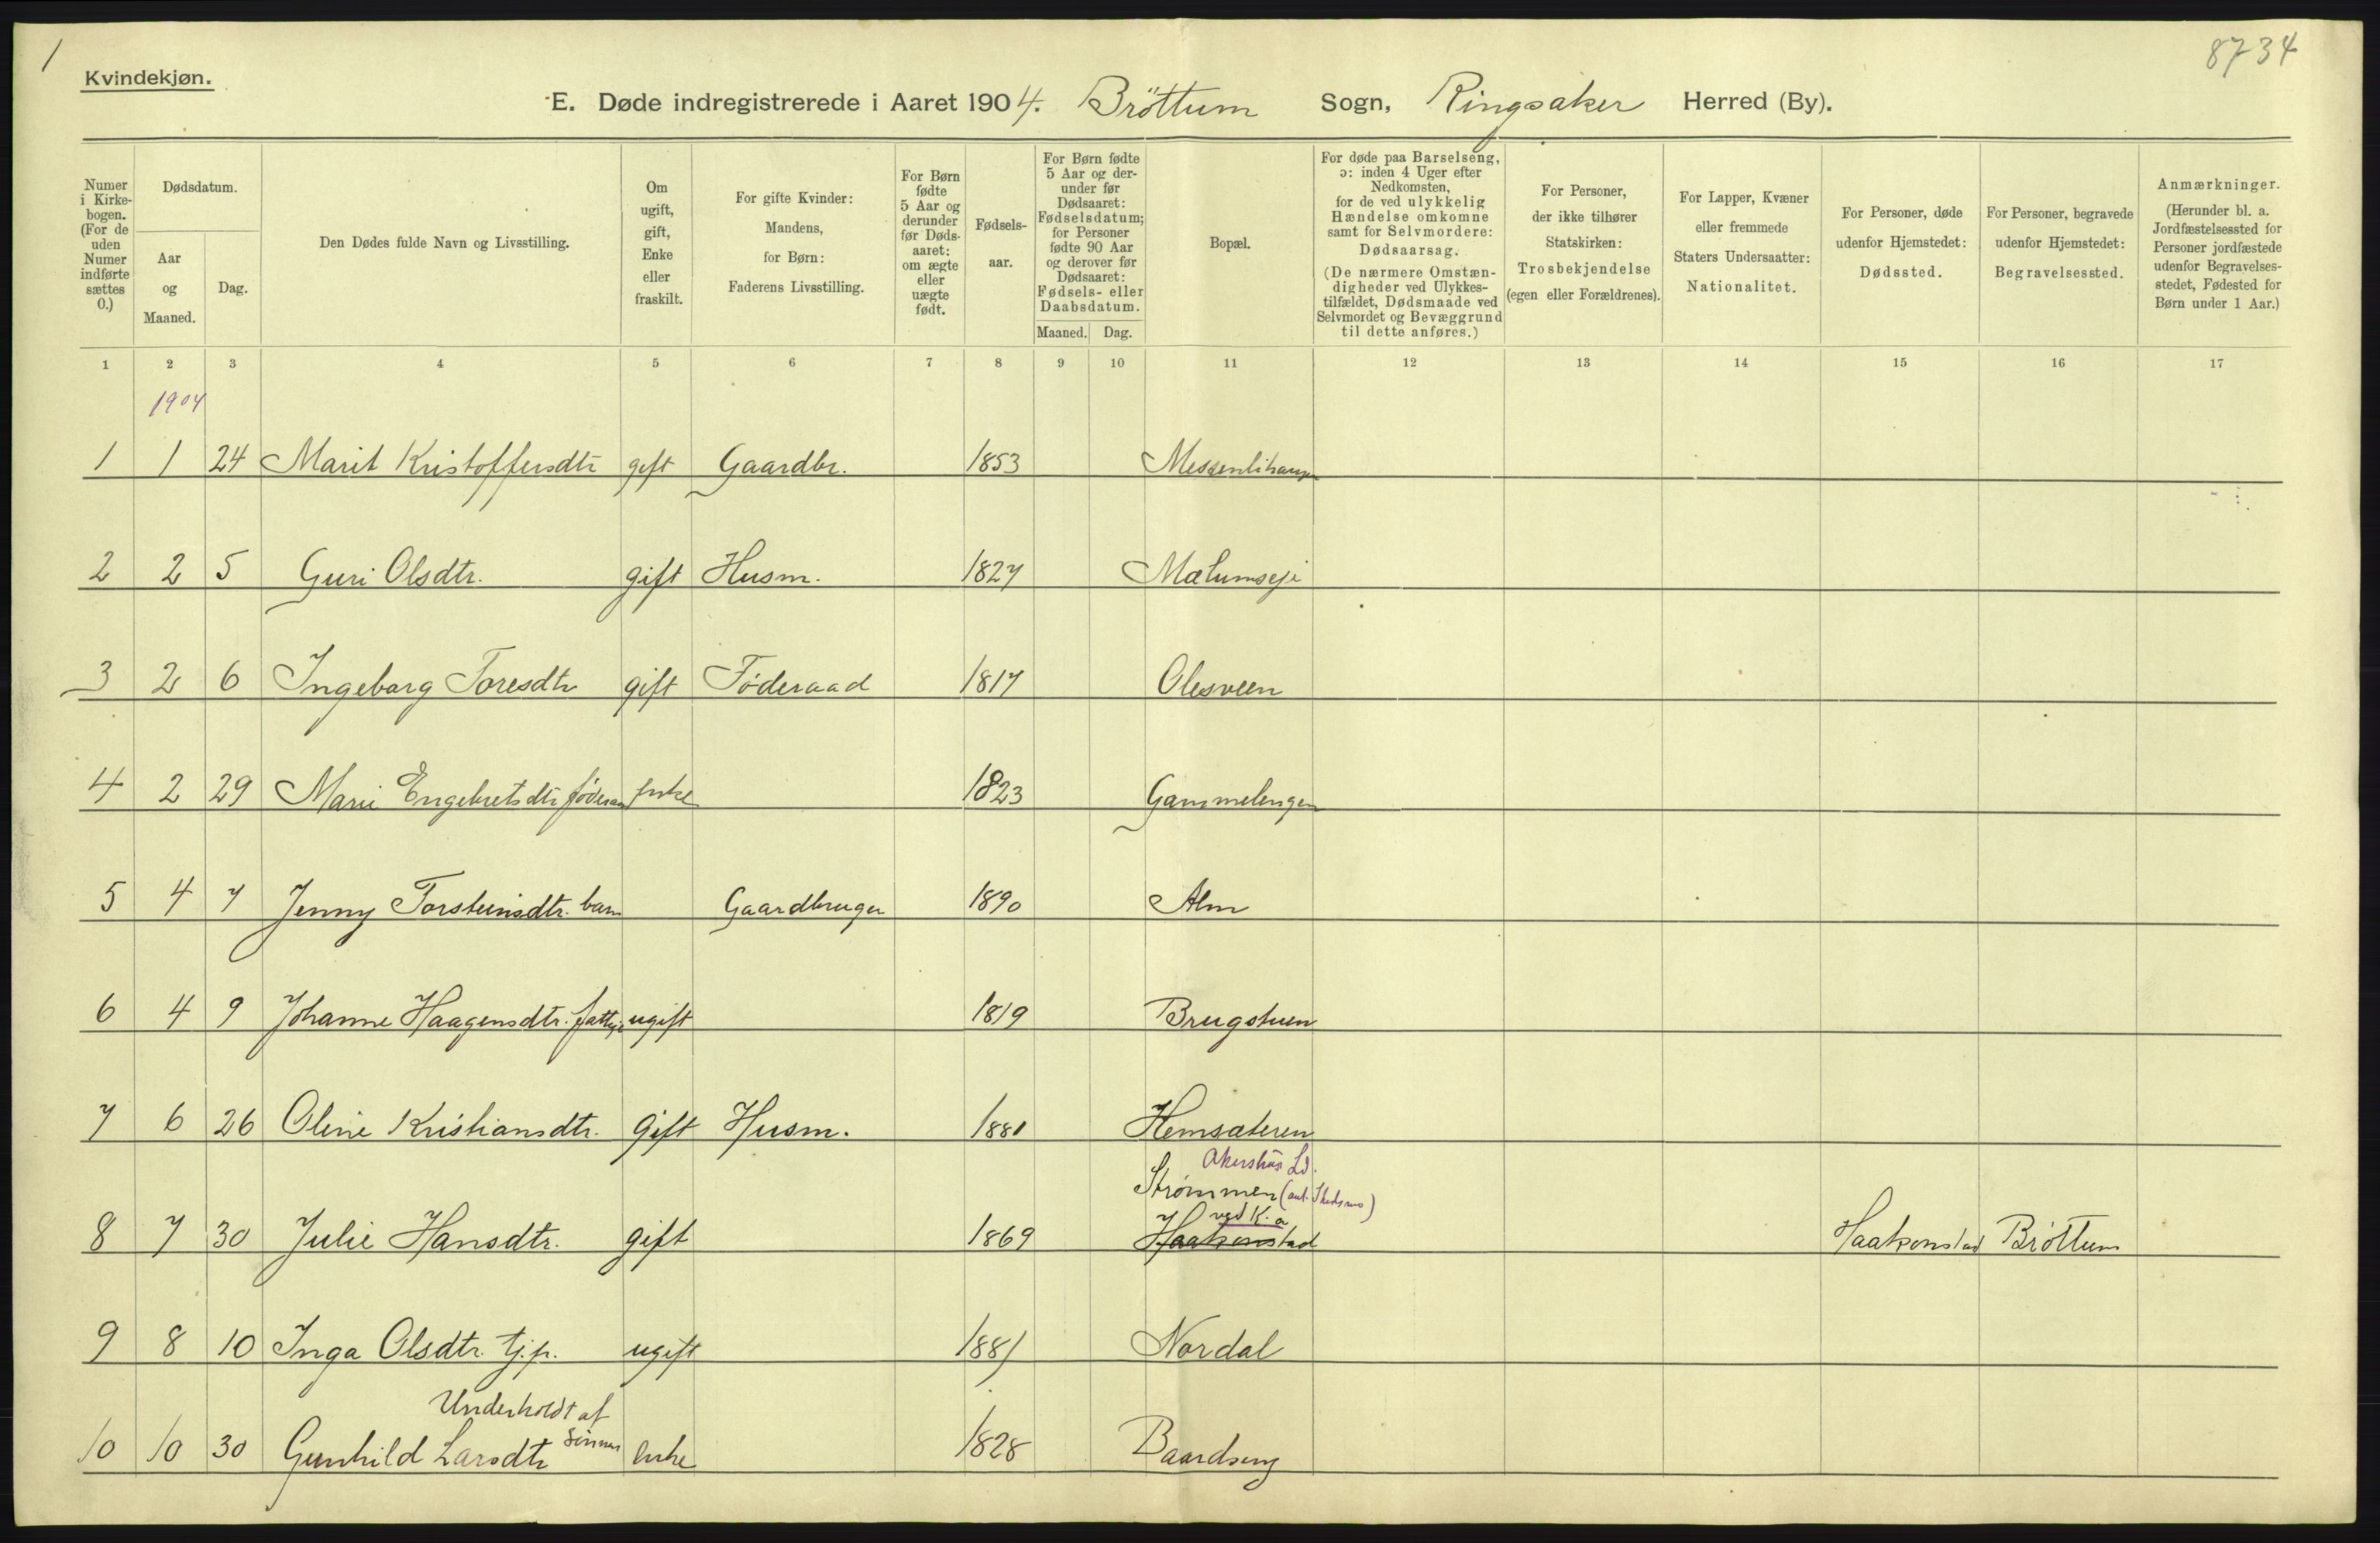 1
8734
Kvindekjøn.
E. Døde indregistrerede i Aaret 1904. Bröttum Sogn, Ringsaker Herred (By).
Numer i Kirke-bogen. (For de uden Numer indførte sættes 0.)
Dødsdatum.
Aar og Maaned.
Dag.
Den Dødes fulde Navn og Livsstilling.
Om ugift, gift, Enke eller fraskilt.
For gifte Kvinder: Mandens, for Børn: Faderens Livsstilling.
For Børn fødte 5 Aar og derunder før Døds-aaret: om ægte eller uægte født.
Fødsels-aar.
For Børn fødte 5 Aar og der-under før Dødsaaret: Fødselsdatum; for Personer fødte 90 Aar og derover før Dødsaaret: Fødsels- eller Daabsdatum.
Maaned. Dag.
Bopæl.
For døde paa Barselseng, ɔ: inden 4 Uger efter Nedkomsten, for de ved ulykkelig Hændelse omkomne samt for Selvmordere: Dødsaarsag. (De nærmere Omstæn-digheder ved Ulykkes-tilfældet, Dødsmaade ved Selvmordet og Bevæggrund til dette anføres.)
For Personer, der ikke tilhører Statskirken: Trosbekjendelse (egen eller Forældrenes).
For Lapper, Kvæner eller fremmede Staters Undersaatter: Nationalitet.
For Personer, døde udenfor Hjemstedet: Dødssted.
For Personer, begravede udenfor Hjemstedet: Begravelsessted.
Anmærkninger. (Herunder bl. a. Jordfæstelsessted for Personer jordfæstede udenfor Begravelses-stedet, Fødested for Børn under 1 Aar.)
1 2 3 4 5 6 7 8 9 10 11 12 13 14 15 16 17
1904
1 1 24 Marit Kristoffersdtr gift Gaardbr. 1853 Messenlihaugen
2 2 5 Guri Olsdtr. gift Husm. 1827 Mælumseje
3 2 6 Ingeborg Toresdtr gift Föderaad 1817 Olesveen
4 2 29 Marie Engebretsdtr föderaad Enke 1823 Gammelengen
5 4 7 Jenny Torsteinsdtr. barn Gaardbruger 1890 Alm
6 4 9 Johanne Haagensdtr. fattig ugift 1819 Brugstuen
7 6 26 Oline Kristiansdtr. Gift Husm. 1881 Hemsæteren
Akershus
Strømmen
ved K.a
8 7 30 Julie Hansdtr. gift 1869 Haakonstad Haakonstad Bröttum
9 8 10 Inga Olsdtr. tj.p. ugift 1881 Nordal
Underholdt af
10 10 30 Gunhild Larsdtr Enke 1828 Baardseng